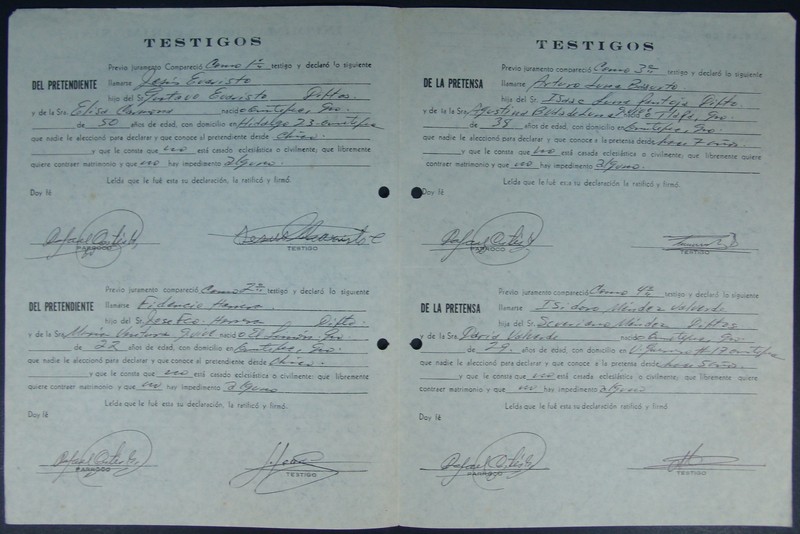 TESTIGOS
Previo juramento Compareció Como 1er testigo y declaró lo siguiente
DEL PRETENDIENTE
llamarse Jesús Evaristo
hijo del Sr. Gustavo Evaristo Diftos.
y de la Sra. Elisa nacido Gro.
de 50 años de edad, con domicilio en Hidalgo 23
que nadie le aleccionó para declarar y que conoce al pretendiente desde Chico.
y que le consta que no está casado eclesiástica o civilmente; que libremente
quiere contraer matrimonio y que no hay impedimento alguno.
Leída que le fué esta su declaración, la ratificó y firmó.
Doy fé
PARROCO
TESTIGO
Previo juramento compareció Como 2º testigo y declaró lo siguiente
DEL PRETENDIENTE
llamarse Fidencio Herrera
hijo del Sr. Jose Fco. Herrera Difto.
y de la Sra. María Ventura nació El Limón, Gro.
de 22 años de edad, con domicilio en Gro.
que nadie le aleccionó para declarar y que conoce al pretendiente desde Chico.
y que le consta que no está casado eclesiástica o civilmente: que libremente
quiere contraer matrimonio y que no hay impedimento alguno
Leída que le fué esta su declaración, la ratificó y firmó.
Doy fé
PARROCO
TESTIGO
TESTIGOS
Previo juramento compareció Como 3er testigo y declaró lo siguiente
DE LA PRETENSA
llamarse Arturo Luna
hijo del Sr. Isaac Luna Pantoja Difto.
y de la Sra. Gro.
de 38 años de edad, con domicilio en Gro.
que nadie le aleccionó para declarar y que conoce a la pretensa desde hace 7 años.
y que le consta que no está casada eclesiástica o civilmente; que libremente quiere
contraer matrimonio y que no hay impedimento alguno.
Leída que le fué esta su declaración, la ratificó y firmó.
Doy fé
PARROCO
TESTIGO
Previo juramento compareció Como 4º testigo y declaró lo siguiente
DE LA PRETENSA
llamarse Isidoro Méndez Valverde
hija del Sr. Severiano Méndez Diftos
y de la Sra. María Valverde nació Gro.
de años de edad, con domicilio en #17
que nadie le aleccionó para declarar y que conoce a la pretensa desde hace 5 años.
y que le consta que no está casada eclesiástica o civilmente; que libremente quiere
contraer matrimonio y que no hay impedimento alguno
Leída que le fué esta su declaración, la ratificó y firmó.
Doy fé
PARROCO
TESTIGO